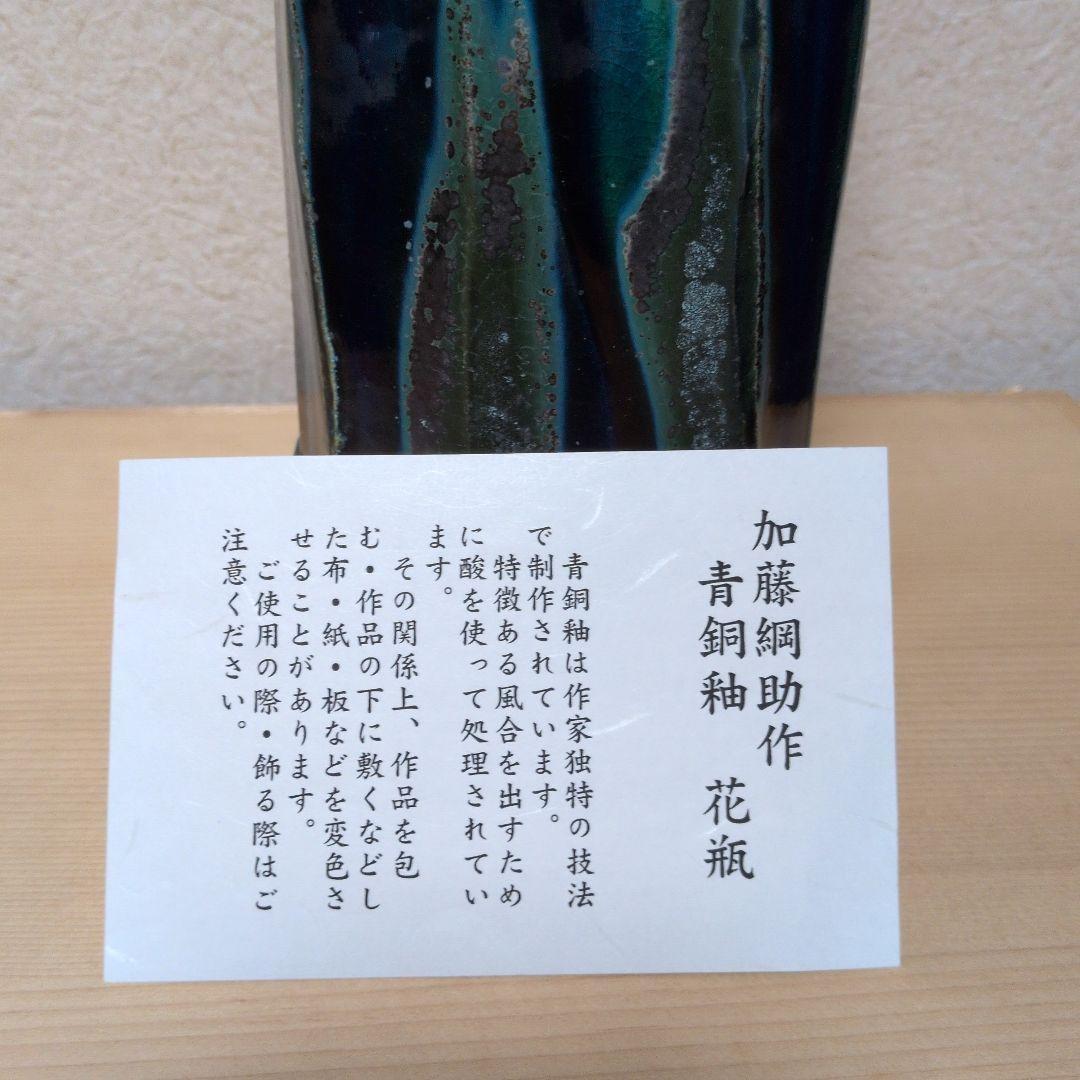 加藤綱助作
青銅釉　花瓶
青銅釉は作家独特の技法
で制作されています。
特徴ある風合を出すため
に酸を使って処理されてい
ます。
その関係上、作品を包
む・作品の下に敷くなどし
た布・紙・板などを変色さ
せることがあります。
ご使用の際・飾る際はご
注意ください。